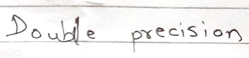 Double precision